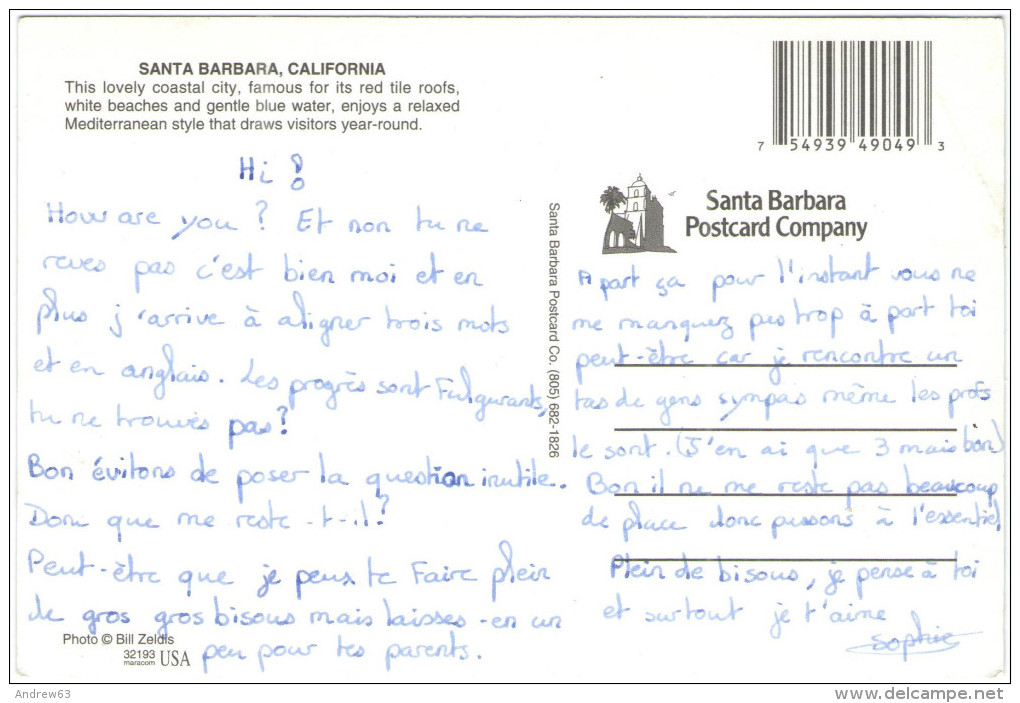 SANTA BARBARA, CALIFORNIA
This lovely coastal city, famous for its red tile roofs,
white beaches and gentle blue water, enjoys a relaxed
Mediterranean style that draws visitors year-round.
Hi !
How are you ? Et non tu ne
reves pas c'est bien moi et en
plus j'arrive à aligner trois mots
et en anglais. Les progrès sont Fulgurants,
tu ne trouves pas?
Bon évitons de poser la question inutile.
Donc que me reste-t-il?
Peut-être que je peux te Faire plein
de gros gros bisous mais laisses-en un
peu pour tes parents.
Photo © Bill Zeldis
32193
maracom USA
Santa Barbara Postcard Co. (805) 682-1826
7 54939 49049 3
Santa Barbara
Postcard Company
A part ça pour l'instant vous ne
me manquez pas trop à part toi
peut-être car je rencontre un
tas de gens sympas même les profs
le sont. (J'en ai que 3 mais bon)
Bon il ne me reste pas beaucoup
de place donc passons à l'essentiel,
Plein de bisous, je pense à toi
et surtout je t'aime
Sophie
Andrew63
delcampe.net